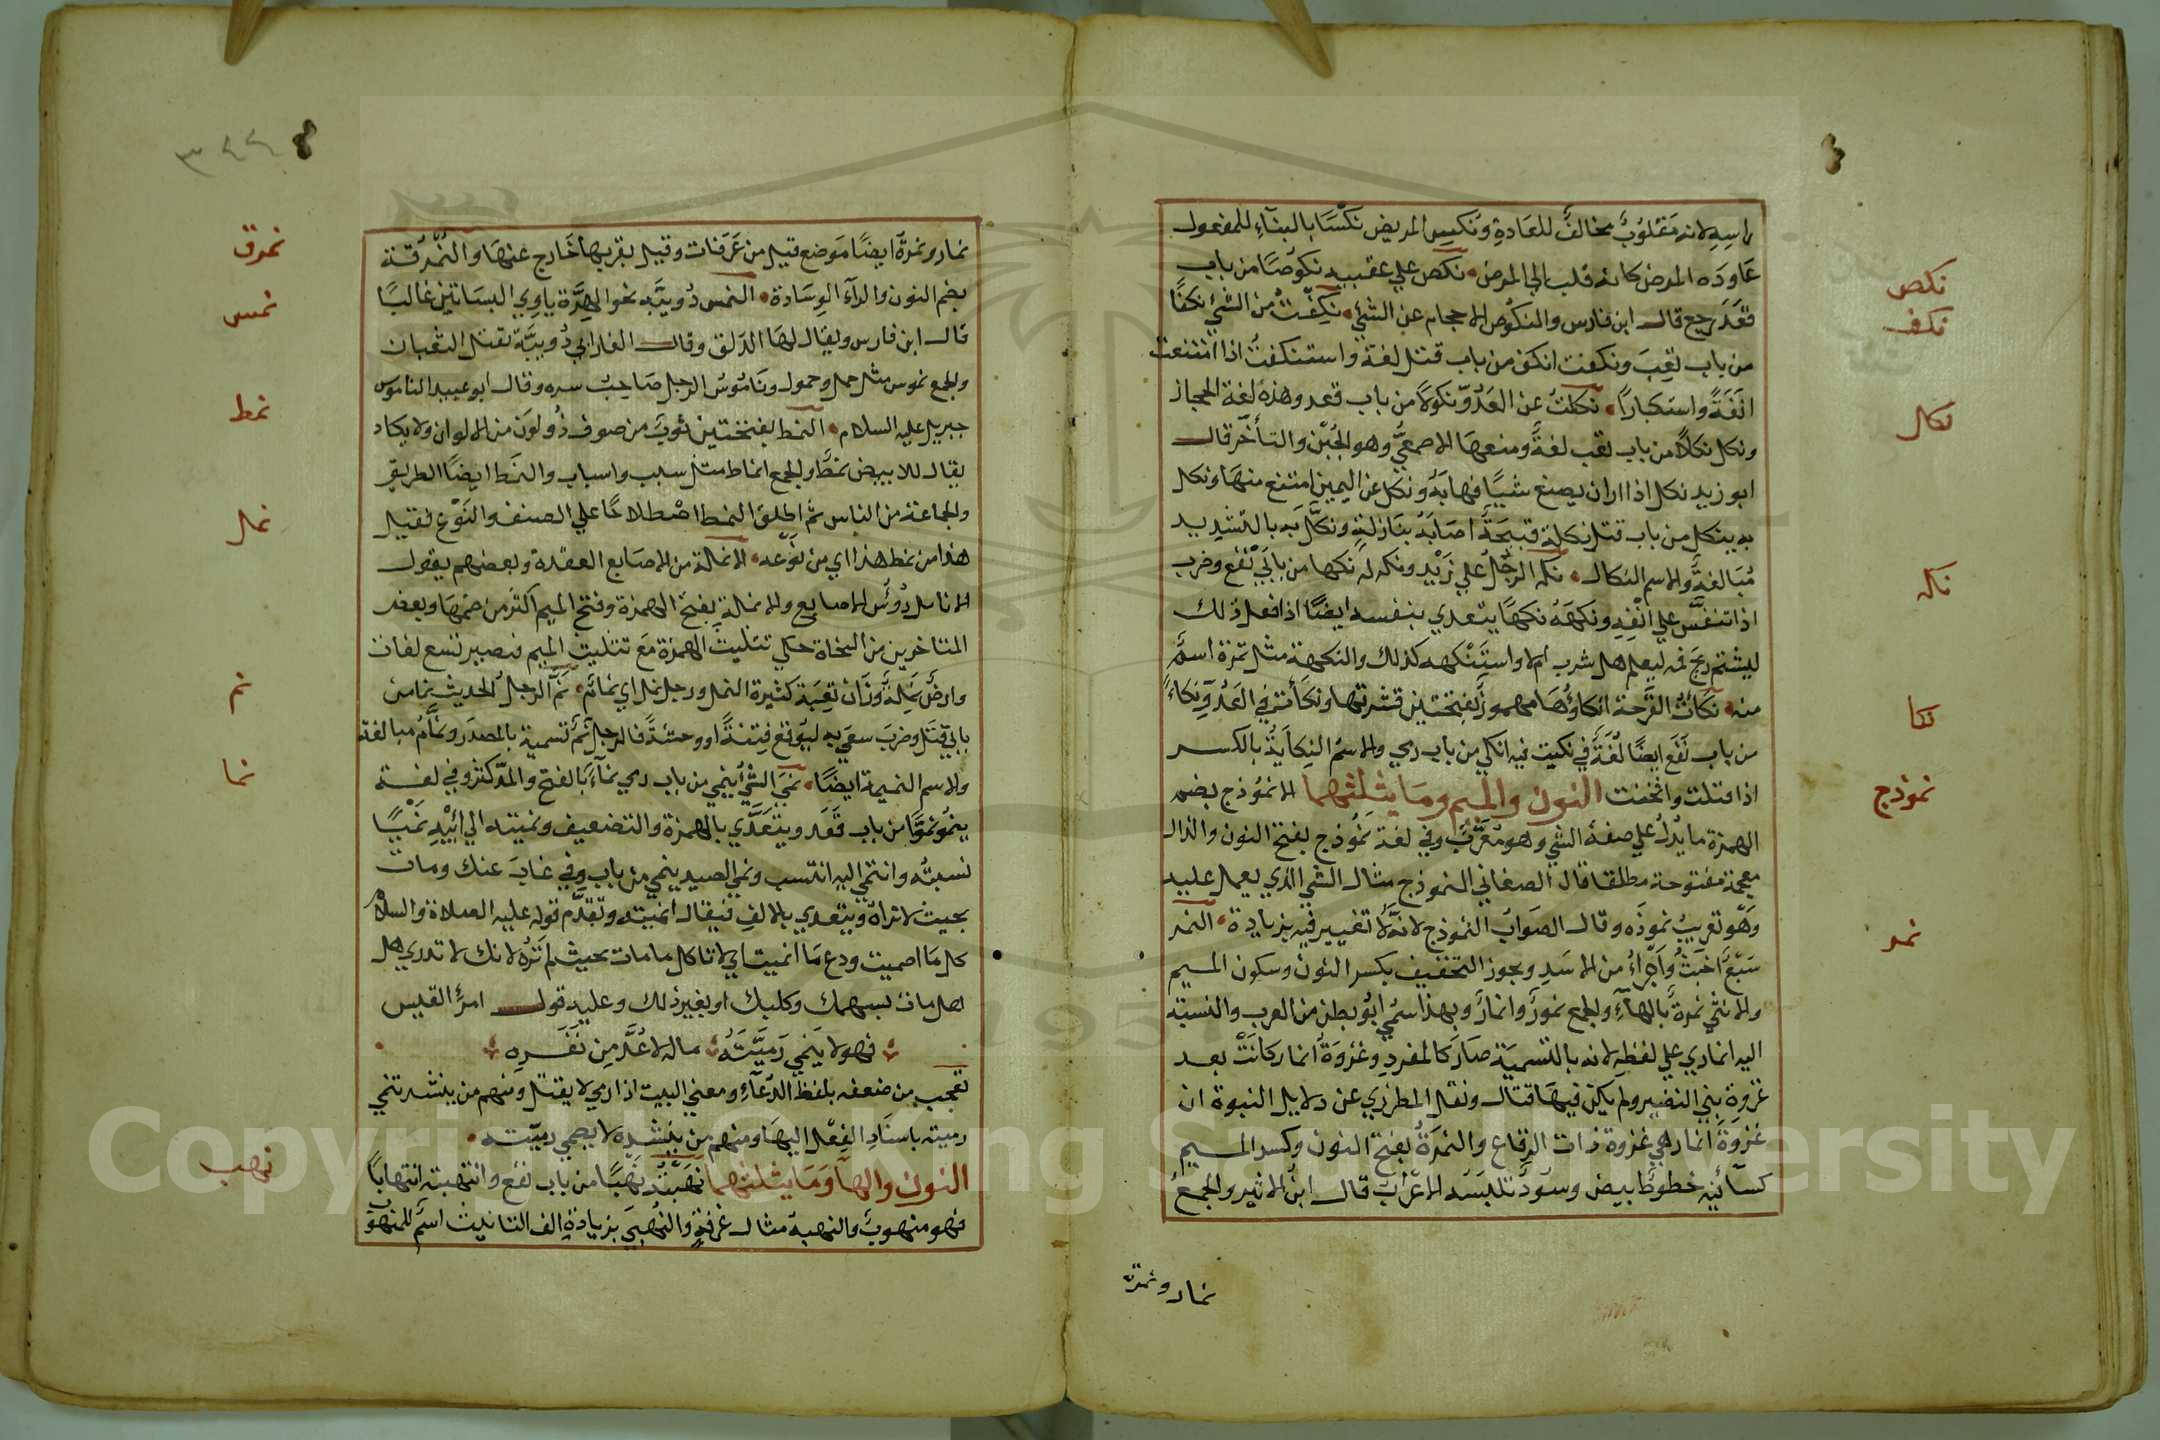 راسه لانه مقلوب مخالف للعادة ونكس المريض نكسا بالبناء للمفعول
عاوده المرض كانه قلب الى المرض نكص علي عقبيه نكوصا من باب
قعد رجع قال ابن فارس والنكوص الاحجام عن الشئ نكفت من الشئ نكفا
من باب تعب ونكفت انكف من باب قتل لغة واستنكفت اذا امتنعت
انفة واستكبارا نكلت عن العدو نكولا من باب قعد وهذه لغة الحجاز
ونكل نكلا من باب تعب لغة ومنعها الاصمعي وهو الجبن والتاخر قال
ابو زيد نكل اذا اراد ان يصنع شيا فهابه ونكل عن اليمين امتنع منها ونكل
به ينكل من باب قتل نكلة قبيحة اصابه بنازلة ونكل به بالتشديد
مبالغة والاسم النكال نكه الرجل علي زيد ونكه له نكها من بابي نفع وضرب
اذا تنفس علي انفه ونكهه نكها يتعدي بنفسه ايضا اذا فعل ذلك
ليشتم ريح فمه ليعلم هل شرب ام لا واستنكهه كذلك والنكهة مثل تمرة اسم
منه نكات القرحة انكاؤها مهموز بفتحتين قشرتها ونكات في العدو نكاء
من باب نفع ايضا لغة في نكيت فيه انكي من باب رمي والاسم النكاية بالكسر
اذا قتلت واثخنت النون والميم وما يثلثهما الانموذج بضم
الهمزة ما يدل علي صفة الشي وهو معرب وفي لغة نموذج بفتح النون والذال
معجمة مفتوحة مطلقا قال الصغاني النموذج مثال الشي الذي يعمل عليه
وهو تعريب نموذه وقال الصواب النموذج لانه لا تغيير فيه بزيادة النمر
سبع اخبث واجراء من الاسد ويجوز التخفيف بكسر النون وسكون الميم
والانثي نمرة بالهاء والجمع نمور وانمار وبهذا سمي ابو بطن من العرب والنسبة
اليه انماري علي لفظه لانه بالتسمية صار كالمفرد وغزوة انمار كانت بعد
غزوة بني النضير ولم يكن فيها قتال ونقل المطرزي عن دلايل النبوة ان
غزوة انمار هي غزوة ذات الرقاع والنمرة بفتح النون وكسر الميم
كساء فيه خطوط بيض وسود تلبسه الاعراب قال ابن الاثير والجمع
نمار ونمرة
نكص
نكف
نكال
نكه
نكا
نموذج
نمر
نمار ونمرة ايضا موضع قيل من عرفات وقيل بقربها خارج عنها والنمرقة
بضم النون والراء الوسادة النمس دويبة نحو الهرة ياوي البساتين غالبا
قال ابن فارس ويقال لها الدلق وقال الفارابي دويبة تقتل الثعبان
والجمع نموس مثل حمل وحمول وناموس الرجل صاحب سره وقال ابو عبيد الناموس
جبريل عليه السلام النمط بفتحتين ثوب من صوف ذو لون من الالوان ولا يكاد
يقال للابيض نمط والجمع انماط مثل سبب واسباب والنمط ايضا الطريق
والجماعة من الناس ثم اطلق النمط اصطلاحا علي الصنف والنوع فقيل
هذا من نمط هذا اي من نوعه الانملة من الاصابع العقدة وبعضهم يقول
الانامل رؤس الاصابع والانملة بفتح الهمزة وفتح الميم اكثر من ضمها وبعض
المتاخرين من النحاة حكي تثليث الهمزة مع تثليث الميم فتصير تسع لغات
وارض نملة وزان تعبة كثيرة النمل ورجل نمل اي نمام نم الرجل الحديث نما من
بابي قتل وضرب سعي به ليوقع فتنة او وحشة فالرجل نم تسمية بالمصدر ونمام مبالغة
والاسم النميمة ايضا نمي الشئ ينمي من باب رمي نماء بالفتح والمد كثر وفي لغة
ينمو نموا من باب قعد ويتعدي بالهمزة والتضعيف ونميته الي ابيه نميا
نسبته وانتمي اليه انتسب ونمي الصيد ينمي من باب رمي غاب عنك ومات
بحيث لا تراه ويتعدي بالالف فيقال انميته وتقدم قوله عليه الصلاة والسلام
كل ما اصميت ودع ما انميت اي لا تاكل ما مات بحيث لم تره لانك لا تدري هل
هل مات بسهمك وكلبك او بغير ذلك وعليه قول امرئ القيس
فهو لا ينمي رميته ماله لا عد من نفره
تعجب من ضعفه بلفظ الدعاء ومعني البيت اذا رمي لا يقتل ومنهم من ينشد تنمي
رميته باسناد الفعل اليها ومنهم من ينشده لا يصمي رميته
النون والهاء وما يثلثهما نهبته نهبا من باب نفع وانتهبته انتهابا
فهو منهوب والنهبة مثال غرفة والنهبي بزيادة الف التانيث اسم للمنهوب
نمرق
نمس
نمط
نمل
نم
نما
نهب
Copyright © King Saud University